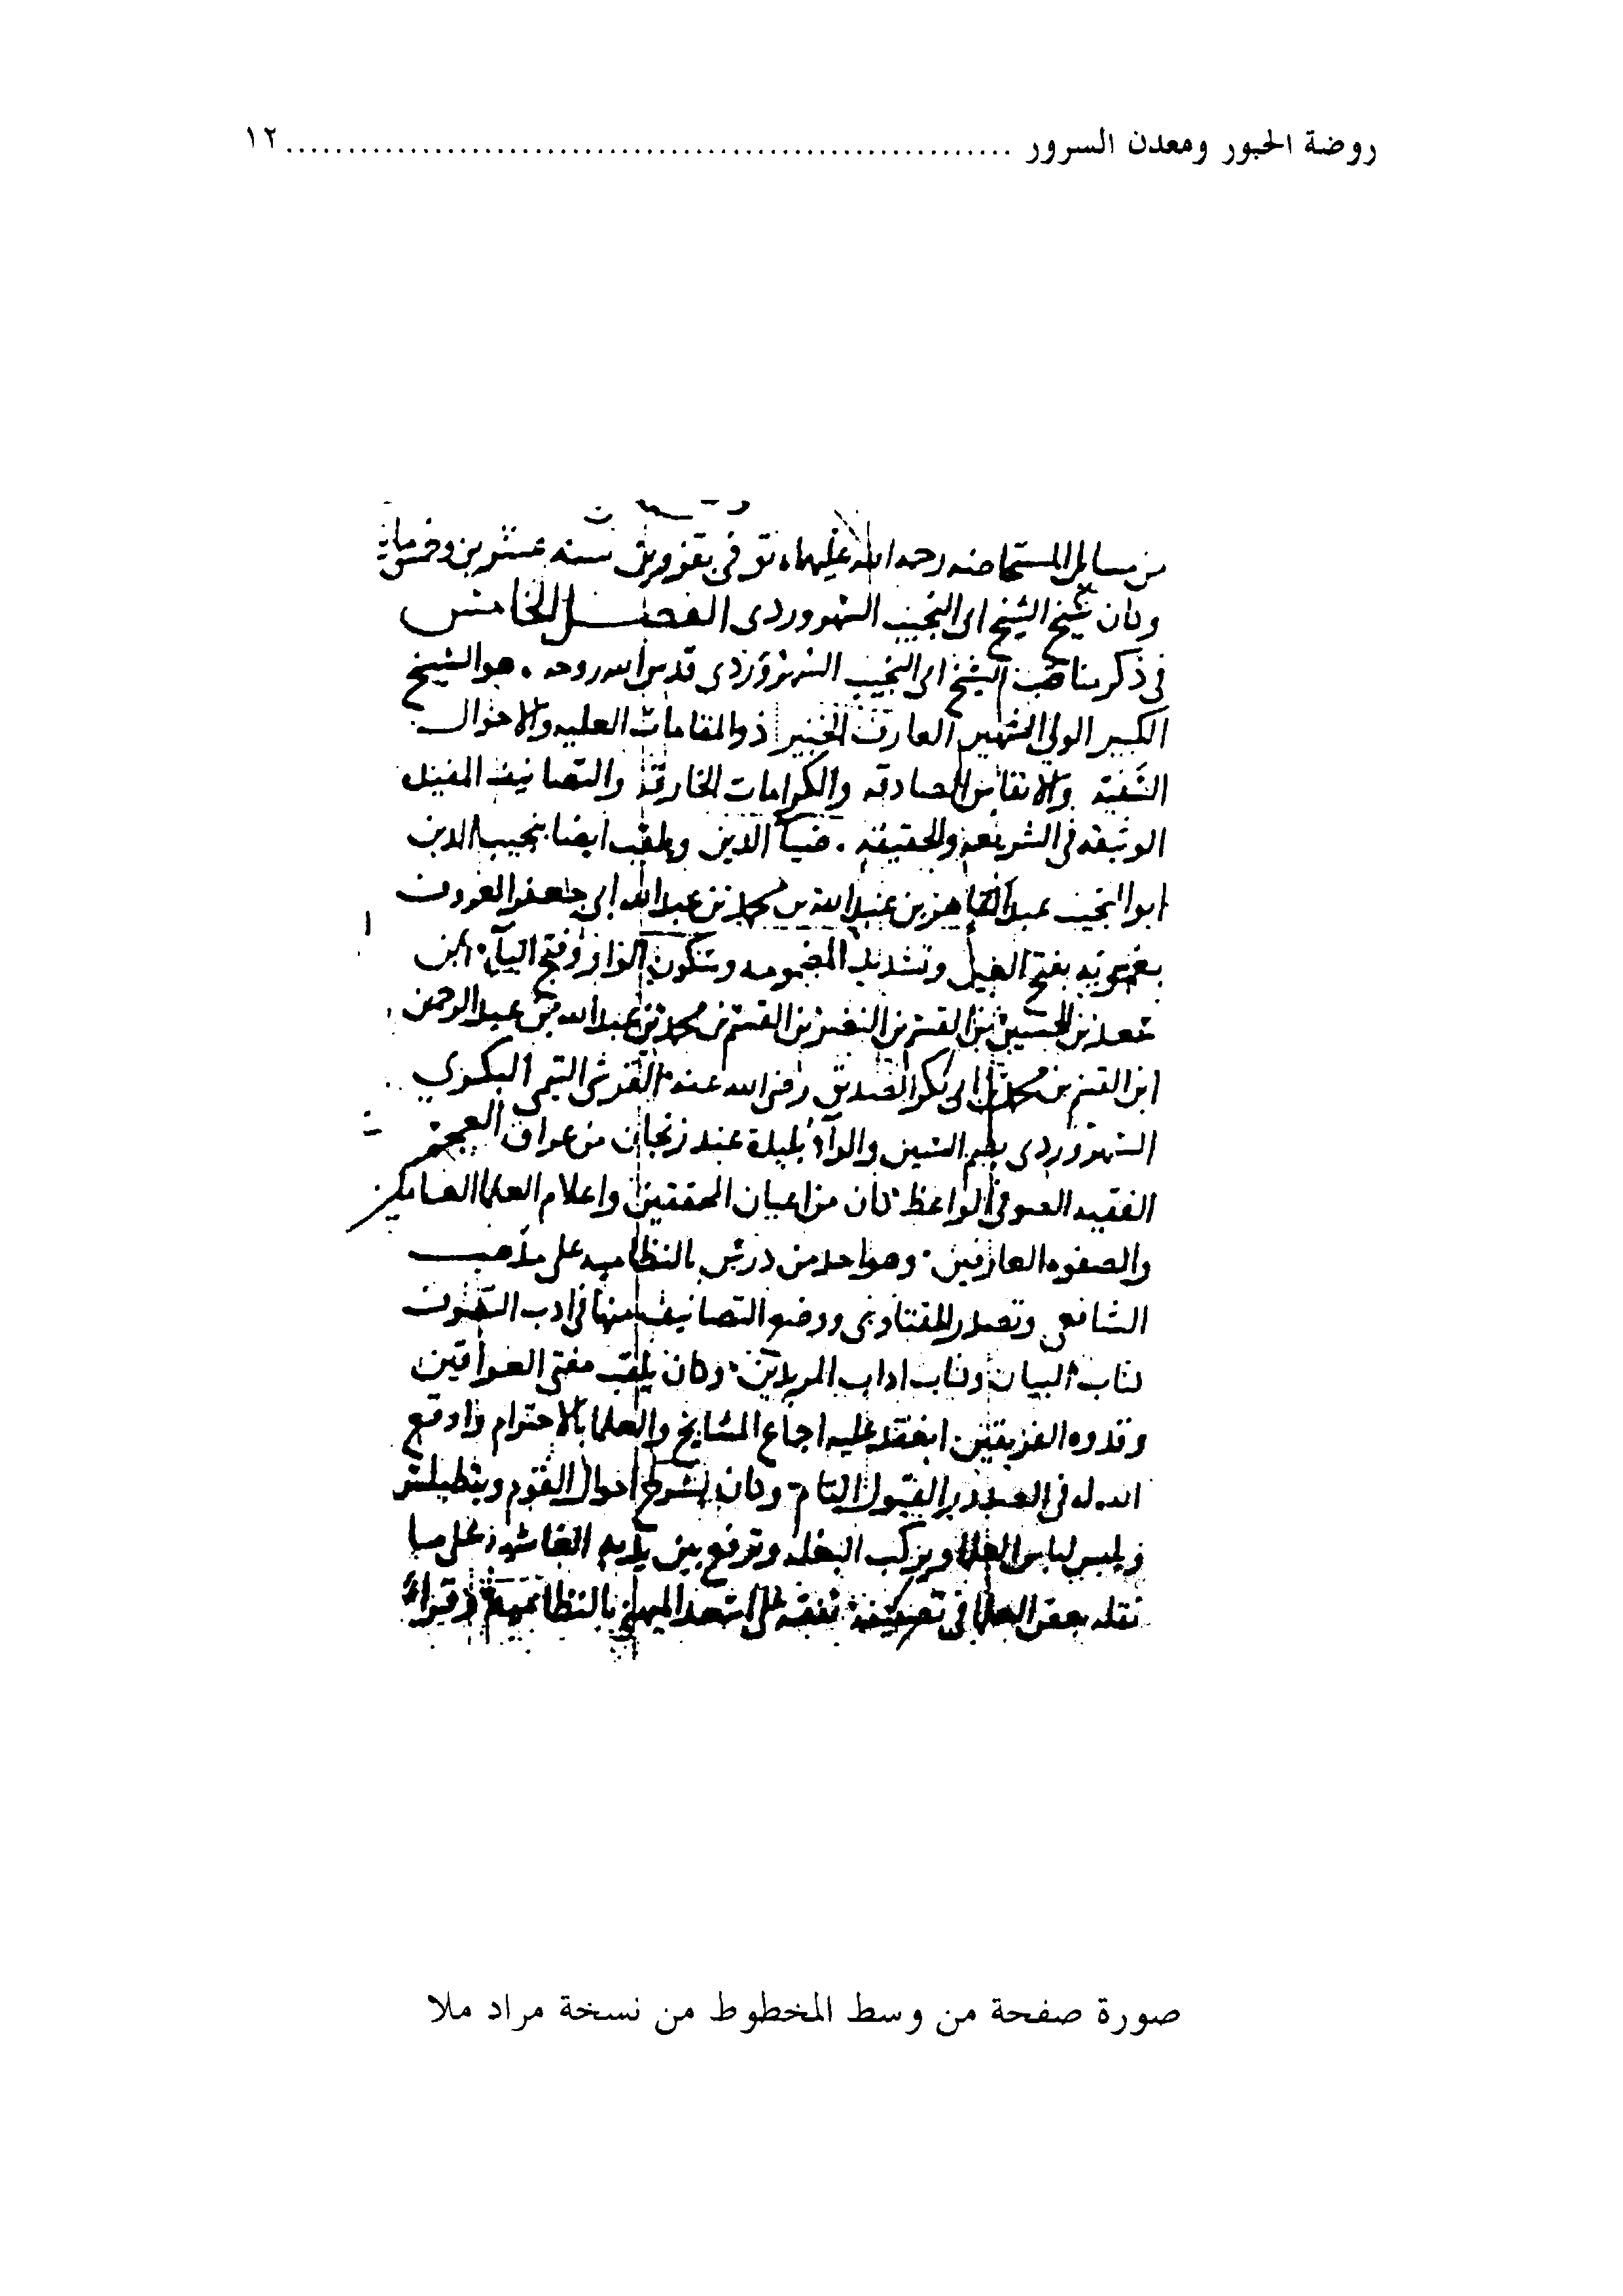 روضة الحبور ومعدن السرور ............................................................ ١٢
من مسايل المستحاضه رحمه الله عليهما، توفى بقزوين سنه عشرين وخمسمايه
وكان شيخ الشيخ ابى النجيب السهروردى الفصل الخامس
فى ذكر مناقب الشيخ ابى النجيب السهروردى قدس الله روحه. هو الشيخ
الكبير الولي الشهير العارف الخبير ذو المقامات العليه والاحوال
السنية والانفاس الصادقه والكرامات الخارقة والتصانيف المفيده
الوثيقه فى الشريعه والحقيقه. ضياء الدين ويلقب ايضا بنجيب الدين
ابو النجيب عبد القاهر بن عبد الله بن محمد بن عبد الله ابى جعفر المعروف
بعمويه بفتح العين وتشديد المضمومه وسكون الواو وفتح الياء. ابن
سعد بن الحسين بن القسم بن النضر بن القسم بن محمد بن عبد الله بن عبد الرحمن
ابن القسم بن محمد بن ابى بكر الصديق رضى الله عنه. القرشى التيمى البكري
السهروردى بضم السين والراء بليدة عند زنجان من عراق العجم
الفقيه الصوفى الواعظ. كان من اعيان المحققين واعلام العلما العاملين
والصفوه العارفين. وهو احد من درس بالنظاميه على مذهب
الشافعى وتصدر للفتاوى ووضع التصانيف منها فى ادب التصوف
كتاب البيان وكتاب اداب المريدين. وكان يلقب مفتى العراقين
وقدوه الفريقين. انعقد عليه اجماع المشايخ والعلما بالاحترام واوقع
الله له فى الصدور القبول التام وكان يشرح احوال القوم ويتطيلس
ويلبس لباس العلما ويركب البغله وترفع بين يديه الغاشيه على ما
نقله بعض العلما فى تصنيفه. تفقه على اسعد الميهنى بالنظاميه وقراء
صورة صفحة من وسط المخطوط من نسخة مراد ملا